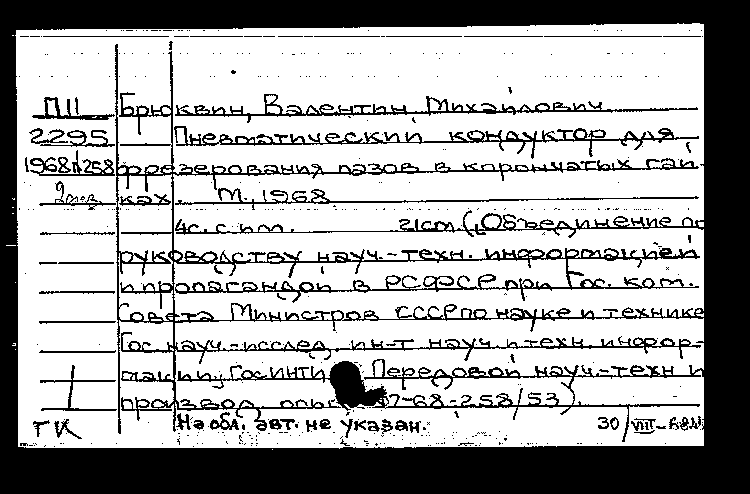 П11 Брюквин, Валентин Михайлович
2295 Пневматический кондуктор для
1968п258 фрезерования пазов в корончатых гай-
ках. М., 1968
4с. с ил. 21см. („Объединение по
руководству науч.-техн. информацией
и пропагандой в РСФСР при Гос. ком.
Совета Министров СССР по науке и технике
Гос. науч.-исслед. ин-т науч. и техн. инфор-
мации, Госинти Передовой науч.-техн и
производ. опыт 7-68-258/53).
ГК На обл. авт. не указан. 30/VIII-68